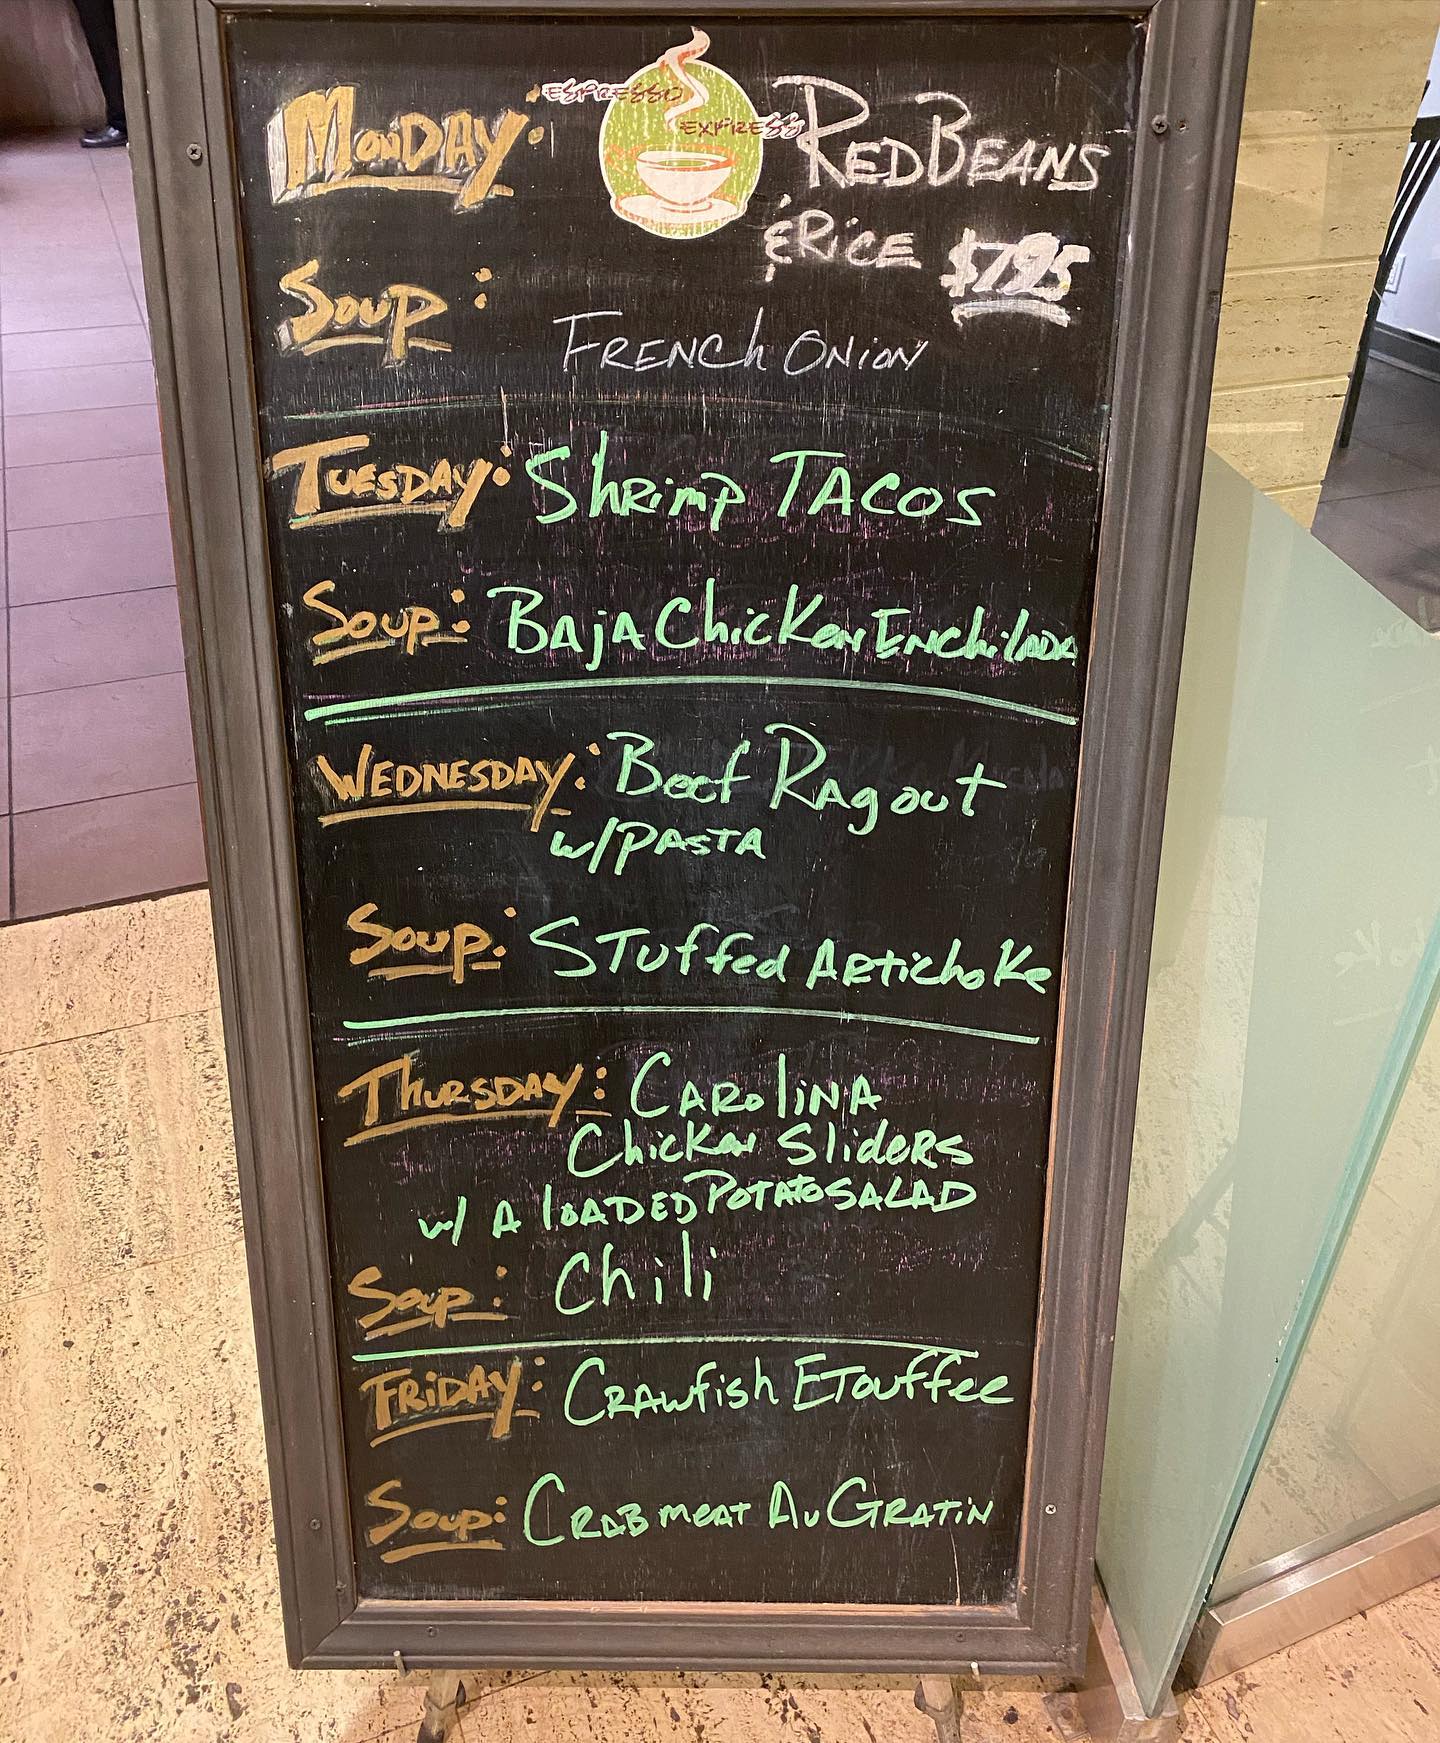 Monday:
ESPRESSO
EXPRESS
Red Beans
& Rice $7.95
Soup:
French Onion
Tuesday: Shrimp Tacos
Soup: Baja Chicken Enchilada
Wednesday: Beef Ragout
w/ Pasta
Soup: Stuffed Artichoke
Thursday: Carolina
Chicken Sliders
w/ A loaded Potato Salad
Soup: Chili
Friday: Crawfish Etouffee
Soup: Crabmeat Au Gratin